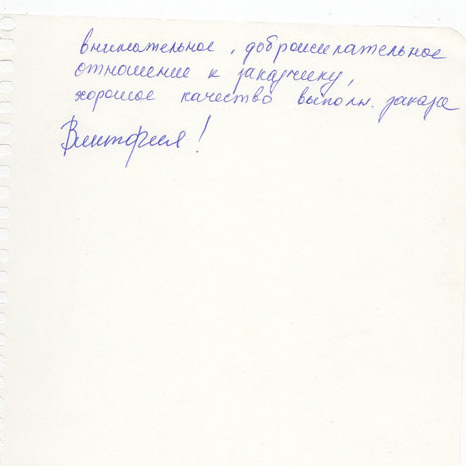 внимательное, доброжелательное
отношение к заказчику,
хорошое качество выполн. заказа
Виктория!